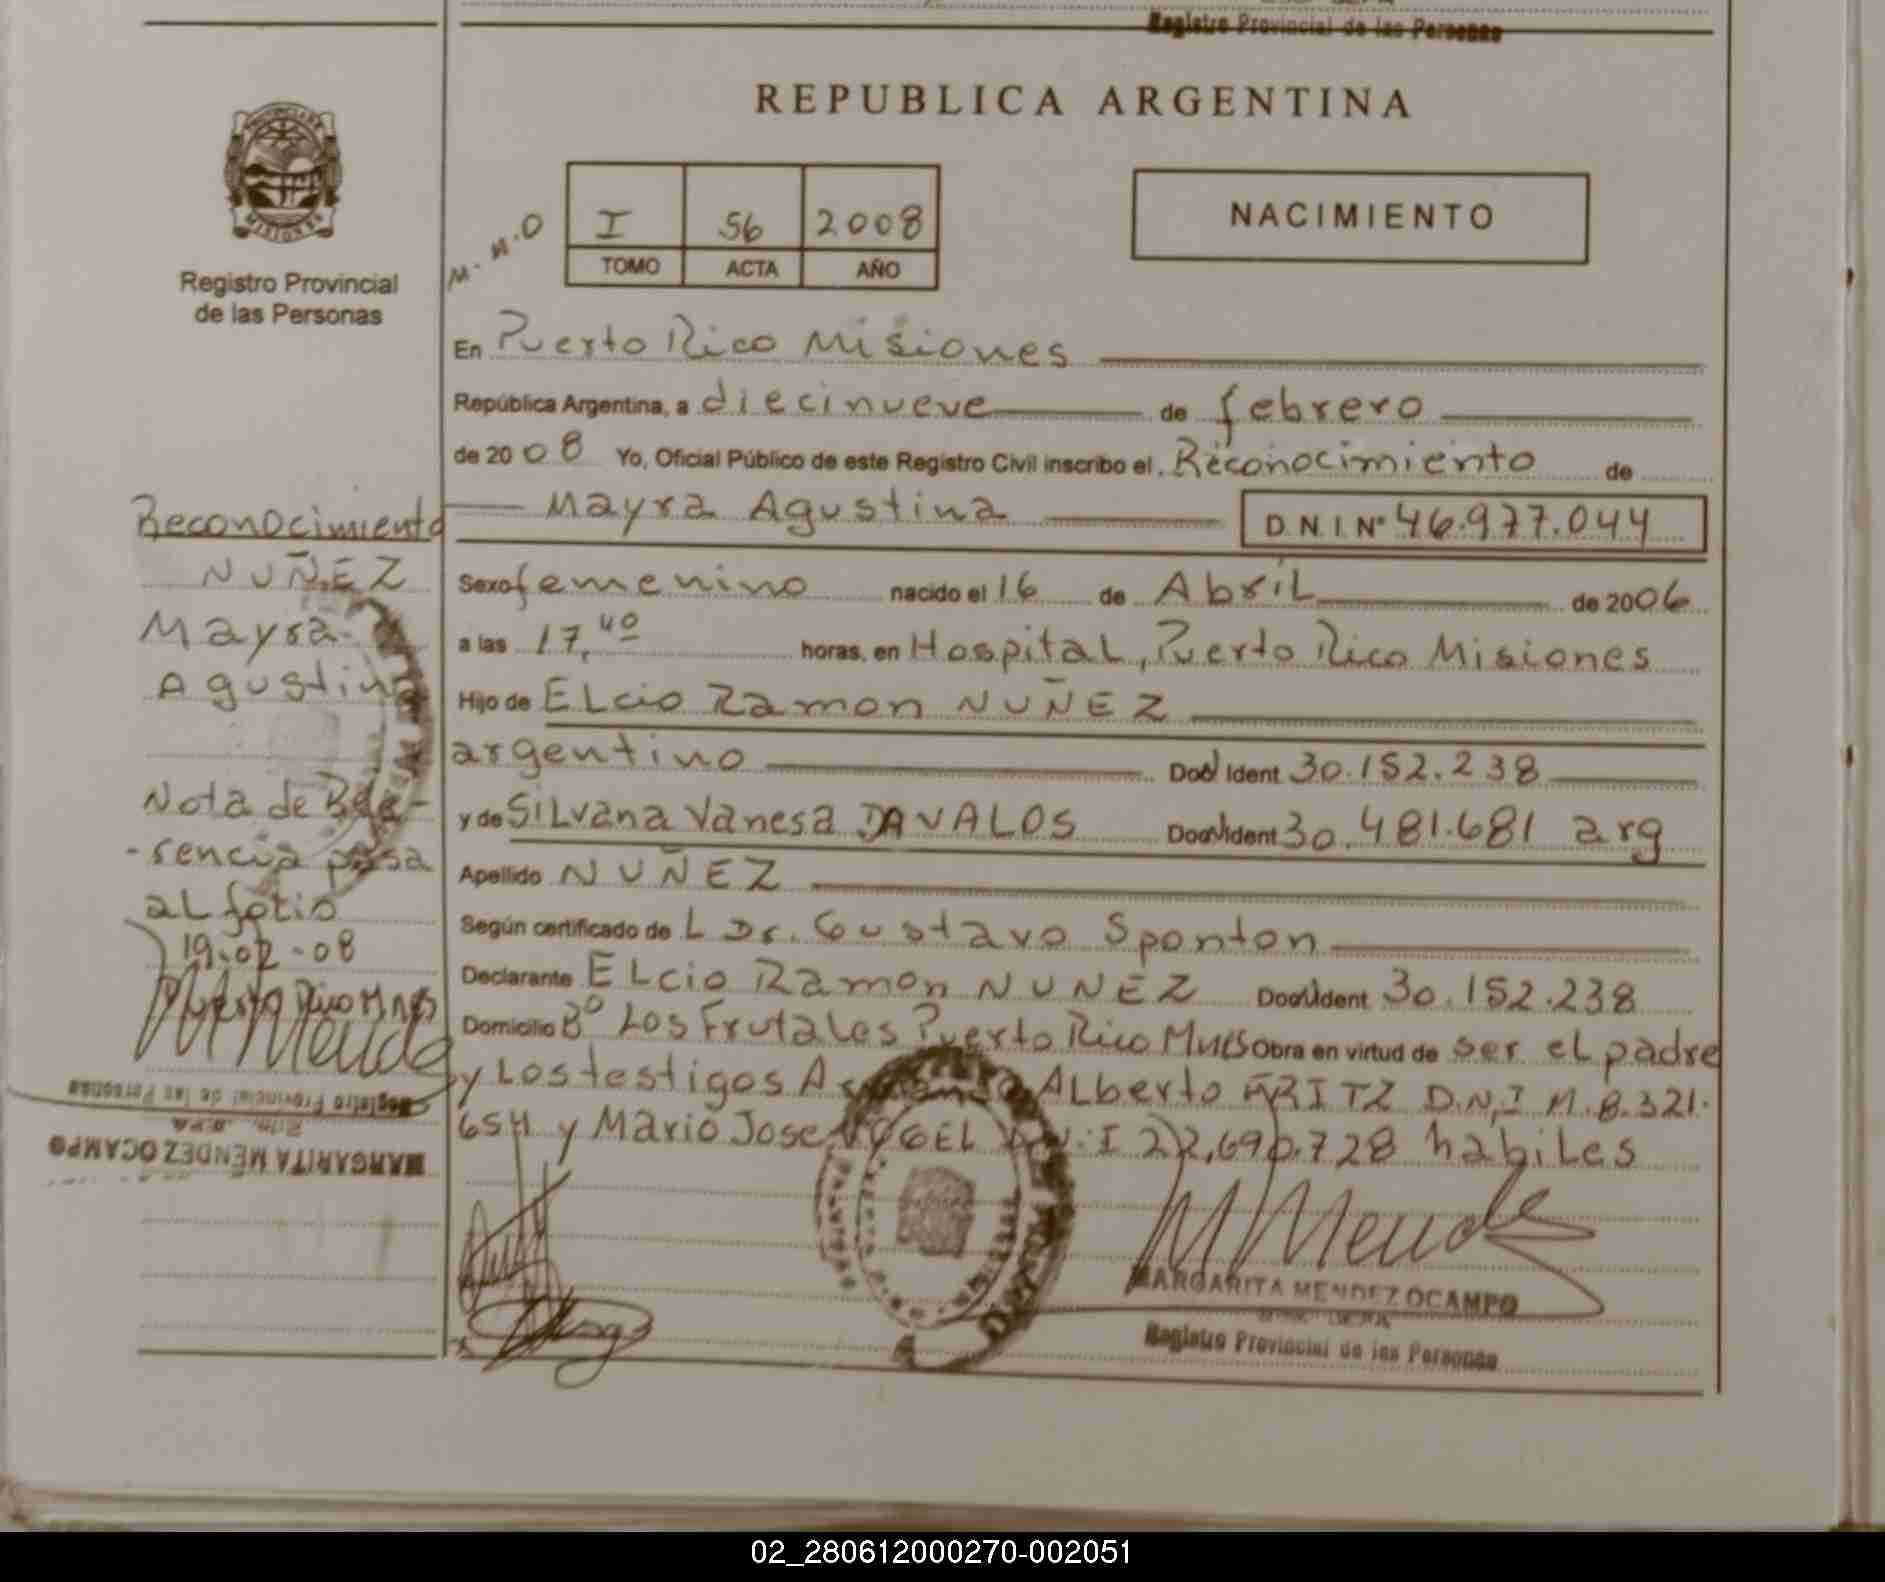 Registro Provincial de las Personas
REPUBLICA ARGENTINA
PROVINCIA DE
MISIONES
Registro Provincial
de las Personas
M.M.O
I 56 2008
TOMO ACTA AÑO
NACIMIENTO
En Puerto Rico Misiones
República Argentina, a diecinueve de febrero
de 2008 Yo, Oficial Público de este Registro Civil inscribo el Reconocimiento de
Mayra Agustina D.N.I.Nº 46.977.044
Sexo femenino nacido el 16 de Abril de 2006
a las 17,40 horas, en Hospital, Puerto Rico Misiones
Hijo de ELcio Ramon NUÑEZ
argentino Doc Ident 30.152.238
y de SiLvana Vanesa DAVALOS Doc Ident 30.481.681 arg
Apellido NUÑEZ
Según certificado de L Dr. Gustavo Sponton
Declarante ELcio Ramon NUNEZ Doc Ident 30.152.238
Domicilio Bº Los FrutaLes Puerto Rico Mnes Obra en virtud de ser el padre
y Los testigos ALberto FRITZ D.N.I M.8.321.
654 y Mario Jose VOGEL D.N.I 22.690.728 habiLes
Reconocimiento
NUÑEZ
Mayra
Agustina
Nota de Refe-
-rencia pasa
aL folio
19-02-08
Puerto Rico Mnes
MMendez
Registro Provincial de las Personas
MARGARITA MÉNDEZ OCAMPO
MMendez
MARGARITA MENDEZ OCAMPO
Registro Provincial de las Personas
02_280612000270-002051